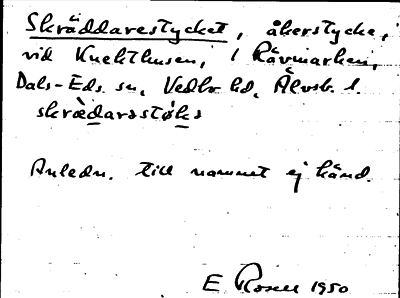 Skräddarestycket, åkerstycke,
vid Knekthusen, i Rävmarken,
Dals-Eds sn, Vedbo hd, Älvsb. l.
skrädarəstøkə
Anledn. till namnet ej känd.
E Rosell 1950